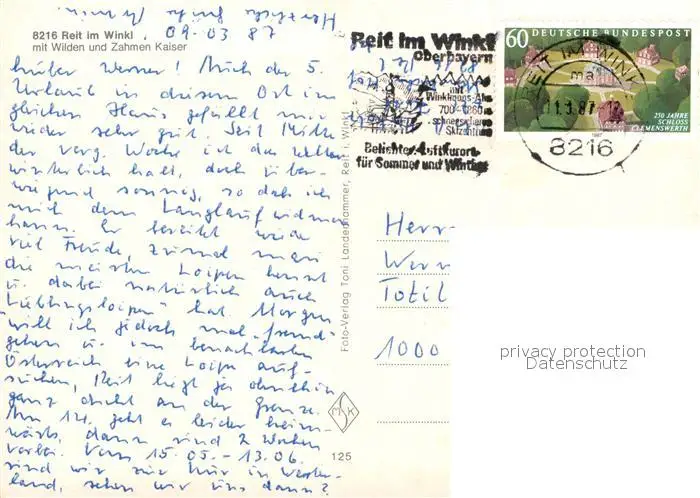 Herzliche Grüße Ihr
8216 Reit im Winkl
mit Wilden und Zahmen Kaiser
09.03.87
Lieber Werner! Auch der 5.
Urlaub in diesem Ort im
gleichen Haus gefällt mir
wieder sehr gut. Seit Mitte
der verg. Woche ist das Wetter
winterlich kalt, doch über-
wiegend sonnig, so daß ich
mich dem Langlauf widmen
kann. Er bereitet wieder
viel Freude, zumal man
die meisten Loipen kennt
u. dabei natürlich auch
"Lieblingsloipen" hat. Morgen
will ich jedoch mal fremd-
gehen u. im benachbarten
Österreich eine Loipe auf-
suchen, Reit liegt ja ohnehin
ganz dicht an der Grenze.
Am 14. geht es leider heim-
wärts, dann sind 2 Wochen
vorbei. Vom 15.05.-13.06.
sind wir zur Kur in Wester-
land, sehen wir uns dann?
Reit im Winkl
Oberbayern
mit
Winklmoos-Alm
700-1800 m
schneesicheres
Skizentrum
Beliebter Luftkurort
für Sommer und Winter
60 DEUTSCHE BUNDESPOST
250 JAHRE
SCHLOSS
CLEMENSWERTH
1987
REIT IM WINKL
ma
11.3.87-12
8216
Foto-Verlag Toni Landenhammer, Reit i. Winkl
Herr
Wern
Totil
1000
MSK
125
privacy protection
Datenschutz